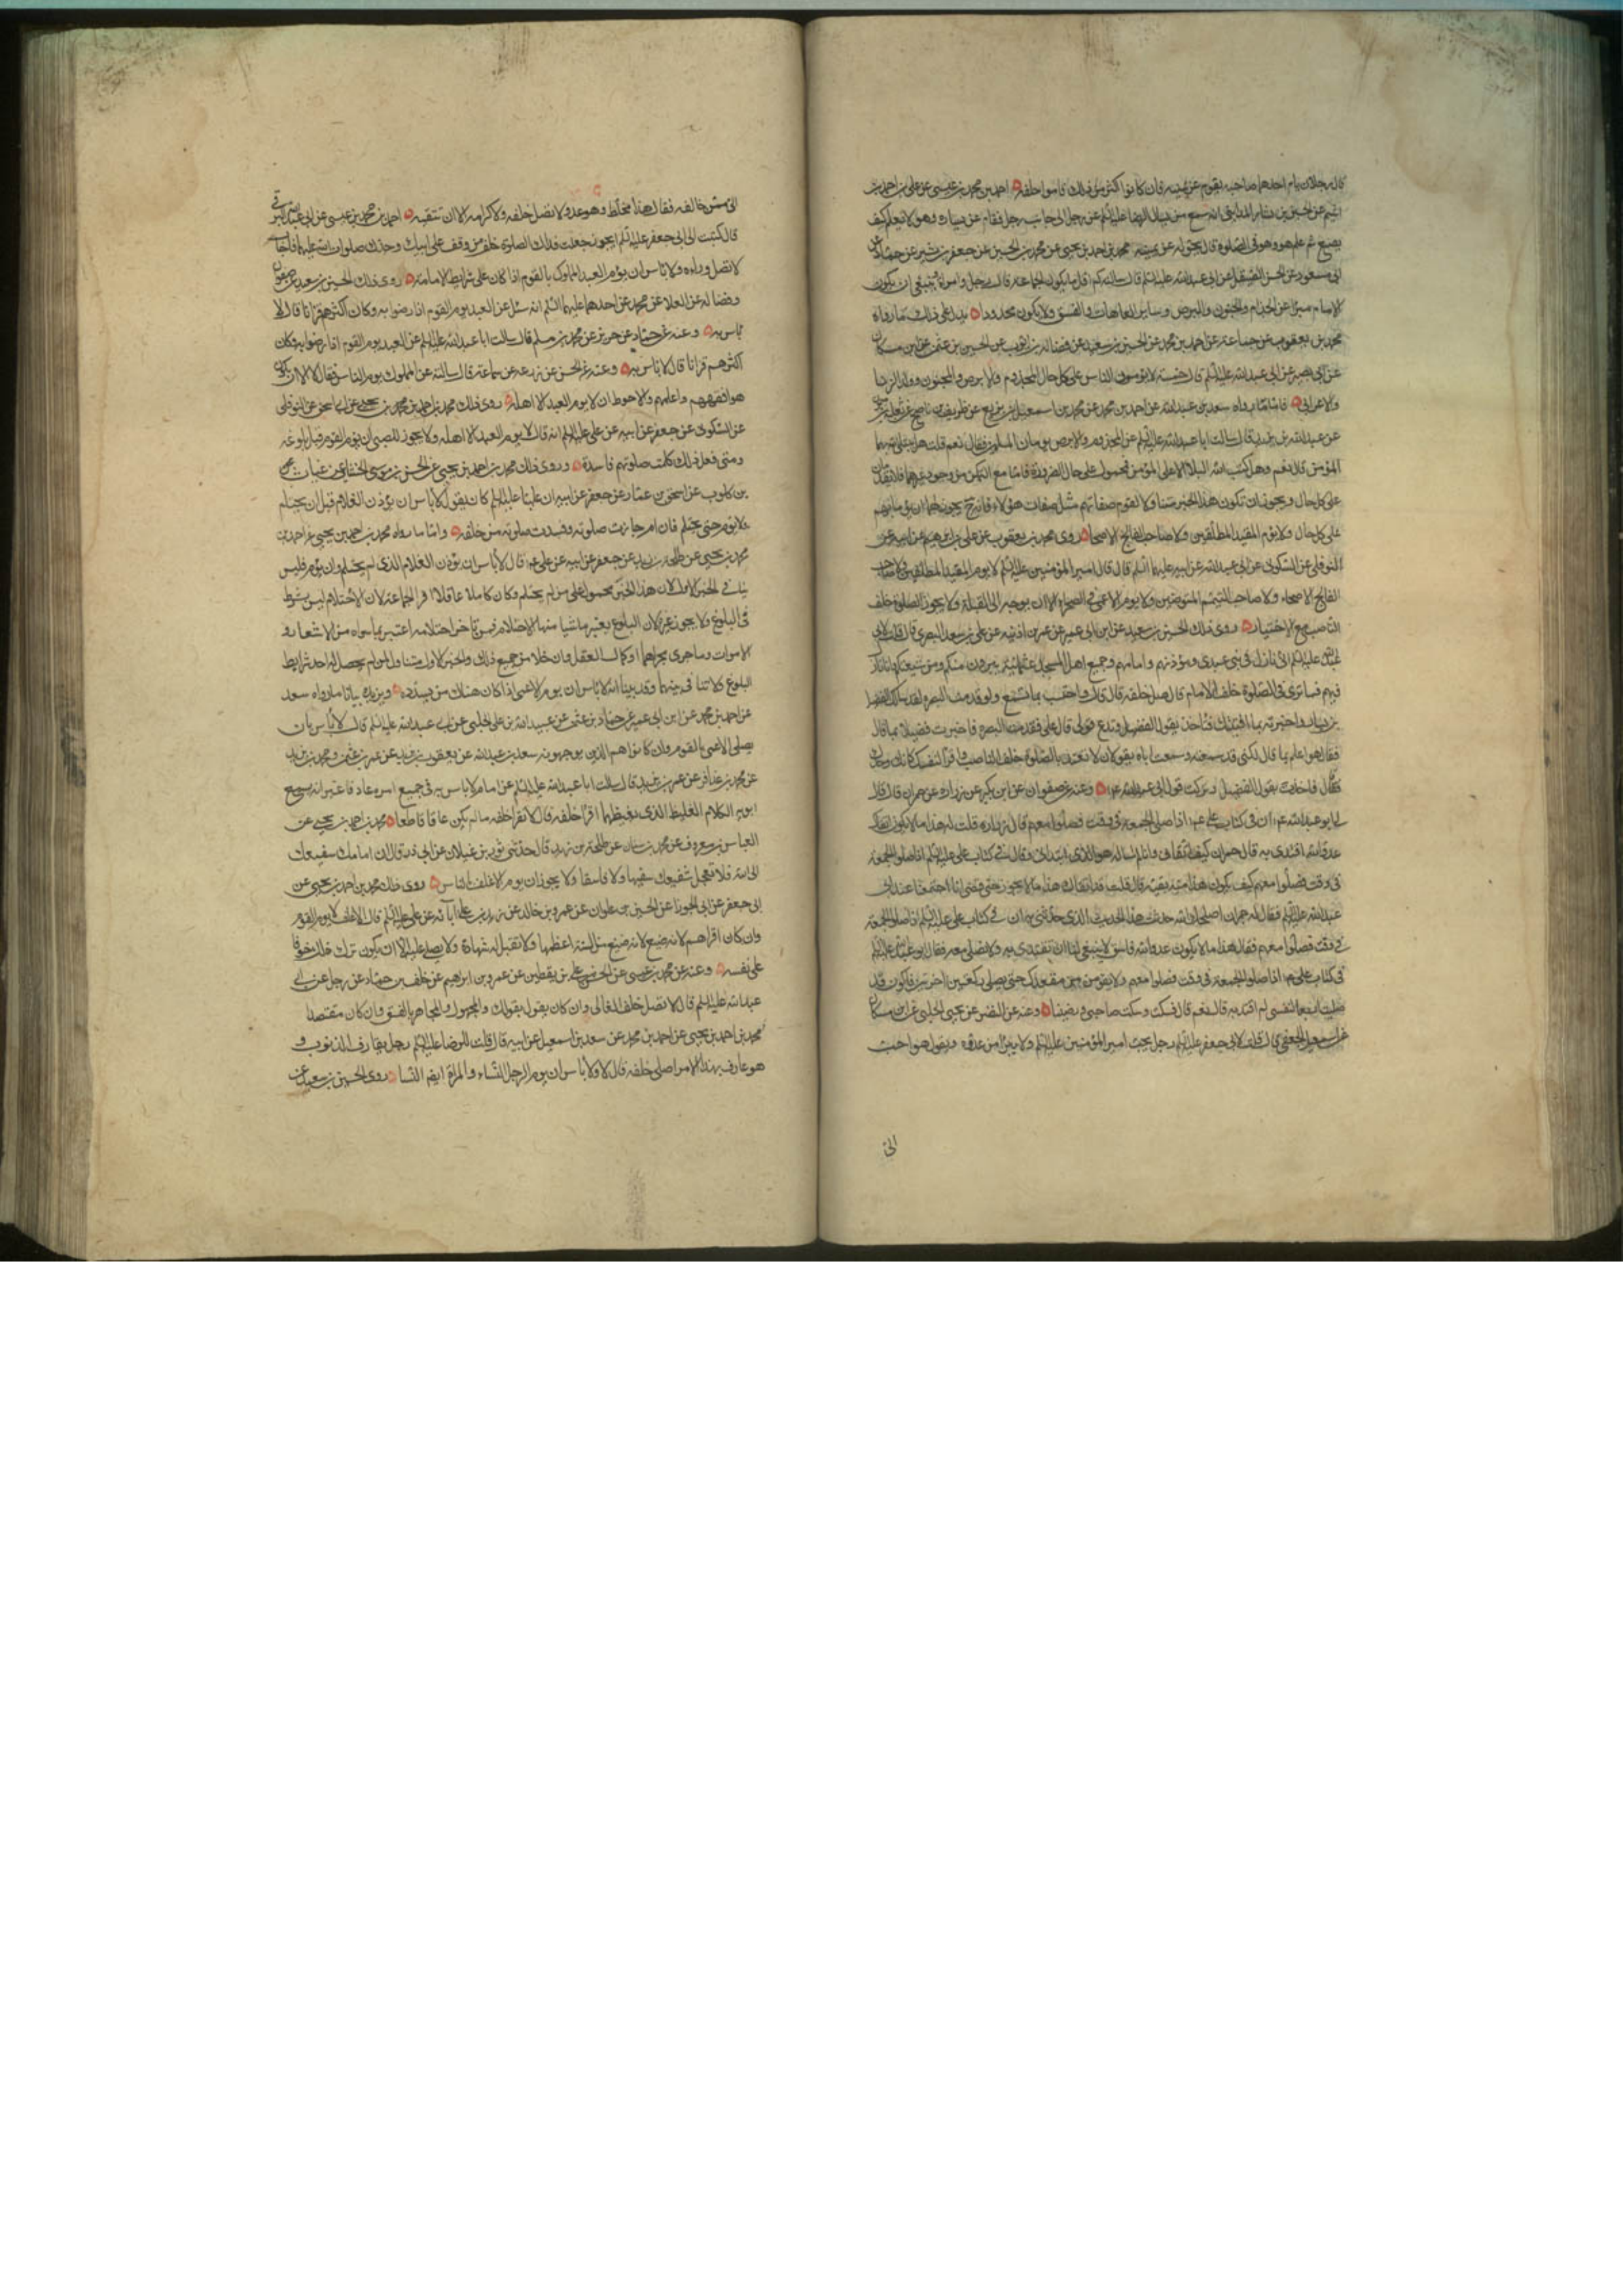 قال رجلان يام احدهما صاحبه يقوم عن يمينه فان كانوا اكثر من ذلك قاموا خلفه احمد بن محمد بن عيسى عن علي بن احمد بن
اشيم عن الحسين بن بشار المدايني انه سمع من يسال الرضا عليه السلم عن رجل صلى الى جانب رجل فقام عن يساره وهو لا يعلم كيف
يصنع ثم علم هو وهو في الصلوة قال يحوله عن يمينه محمد بن احمد بن يحيى عن محمد بن الحسين عن جعفر بن بشير عن حماد عن
ابى مسعود عن الحسن الصيقل عن ابي عبد الله عليه السلم قال سالته كم اقل ما يكون الجماعة قال رجل وامراة وينبغي ان يكون
الامام مبرا عن الجذام والجنون والبرص وساير العاهات والفسق ولا يكون محدودا يدل على ذلك ما رواه
محمد بن يعقوب عن جماعة عن احمد بن محمد عن الحسين بن سعيد عن فضالة بن ايوب عن الحسين بن عثمن عن ابن مسكان
عن ابي بصير عن ابي عبد الله عليه السلم قال خمسة لا يؤمون الناس على كل حال المجذوم والابرص والمجنون وولد الزنا
والاعرابي فاما ما رواه سعد بن عبد الله عن احمد بن محمد عن محمد بن اسمعيل بن بزيع عن ظريف بن ناصح عن ثعلبة بن
عن عبد الله بن يزيد قال سالت ابا عبد الله عليه السلم عن المجذوم والابرص يؤمان المسلمين فقال نعم قلت هل يبتلي بهما
المؤمن قال نعم وهل كتب الله البلا الا على المؤمن فمحمول على حال الضرورة فاما مع التمكن من وجود غيرهما فلا يتقدمان
على كل حال ويجوز ان تكون هذا الخبر متناولا لقوم صفاتهم مثل صفات هؤلاء فانه يجوز لهما ان يؤما بهم
على كل حال ولا يؤم المقيد المطلقين ولا صاحب الفالج الاصحا روى محمد بن يعقوب عن علي بن ابرهيم عن ابيه عن
النوفلي عن السكوني عن ابي عبد الله عن ابيه عليهما السلم قال قال امير المؤمنين عليه السلم لا يؤم المقيد المطلقين ولا صاحب
الفالج الاصحاء ولا صاحب التيمم المتوضين ولا يؤم الاعمى في الصحراء الا ان يوجه الى القبلة ولا يجوز الصلوة خلف
الناصب مع الاختيار روى ذلك الحسين بن سعيد عن ابن ابي عمير عن عمر بن اذينه عن علي بن سعد البصري قال قلت لابي
عبد الله عليه السلم اني نازل في بني عدي ومؤذنهم وامامهم وجميع اهل المسجد عثمانية يبرؤن منكم ومن شيعتكم وانا نازل
فيهم فما ترى في الصلوة خلف الامام قال صل خلفه قال قال واحتسب بما تسمع ولو قدمت البصره لقد سالك الفضيل
بن يسار واخبرته بما افتيتك فتاخذ بقول الفضيل وتدع قولي قال علي فقدمت البصره فاخبرت فضيلا بما قال
فقال هو اعلم بما قال لكني قد سمعته وسمعت اباه يقولان لا تعتد بالصلوة خلف الناصب واقرا لنفسك كانك وحدك
فقال فاخذت بقول الفضيل وتركت قول ابي عبد الله ع وعنه عن صفوان عن ابن بكير عن زرارة عن حمران قال قال
لي ابو عبد الله ع ان في كتاب علي ع اذا صلوا الجمعة في وقت فصلوا معهم قال زراره قلت له هذا ما لا يكون اتقاك
عدو الله اقتدي به قال حمران كيف اتقاني وانا لم اساله هو الذي ابتداني وقال في كتاب علي عليه السلم اذا صلوا الجمعة
في وقت فصلوا معهم كيف يكون هذا منه تقية قال قلت قد اتقاك هذا ما لا يجوز حتى قضي انا اجتمعنا عند ابي
عبد الله عليه السلم فقال له حمران اصلحك الله حدثت هذا الحديث الذي حدثتني به ان في كتاب علي عليه السلم اذا صلوا الجمعة
في وقت فصلوا معهم فقال هذا ما لا يكون عدو الله فاسق لا ينبغي لنا ان نقتدي به ولا نصلي معه فقال ابو عبد الله عليه السلم
في كتاب علي ع اذا صلوا الجمعة في وقت فصلوا معهم ولا تقومن من مقعدك حتى يصلي ركعتين اخرتين قال فاكون قد
صليت اربعا لنفسي لم اقتد به قال نعم قال فسكت وسكت صاحبي ورضينا وعنه عن النضر عن يحيى الحلبي عن ابن مسكان
عن اسمعيل الجعفي قال قلت لابي جعفر عليه السلم رجل يحب امير المؤمنين عليه السلم ولا يبرأ من عدوه ويقول هو احب
الىّ
الى ممن خالفه فقال هذا مخلط وهو عدو ولا تصل خلفه ولا كرامه الا ان تتقيه احمد بن محمد بن عيسى عن ابي عبد الله البرقي
قال كتبت الى ابي جعفر عليه السلم ايجوز جعلت فداك الصلوة خلف من وقف على ابيك وجدك صلوات الله عليهما فاجاب
لا تصل وراءه ولا باس ان يؤم العبد المملوك بالقوم اذا كان على شرايط الامامة روى ذلك الحسين بن سعيد عن صفوان
وفضالة عن العلا عن محمد عن احدهما عليهما السلم انه سئل عن العبد يؤم القوم اذا رضوا به وكان اكثرهم قرانا قال لا
باس به وعنه عن حماد عن حريز عن محمد بن مسلم قال سالت ابا عبد الله عليه السلم عن العبد يؤم القوم اذا رضوا به وكان
اكثرهم قرانا قال لا باس به وعنه عن الحسن عن زرعه عن سماعة قال سالته عن المملوك يؤم الناس فقال لا الا ان يكون
هو افقههم واعلمهم والاحوط ان لا يؤم العبد الا اهله روى ذلك محمد بن احمد بن محمد بن يحيى عن ابي اسحق عن النوفلي
عن السكوني عن جعفر عن ابيه عن علي عليه السلم انه قال لا يؤم العبد الا اهله ولا يجوز للصبي ان يؤم القوم قبل بلوغه
ومتى فعل ذلك كانت صلوتهم فاسدة وروى ذلك محمد بن احمد بن يحيى عن الحسن بن موسى الخشاب عن غياث
بن كلوب عن اسحق بن عمار عن جعفر عن ابيه ان عليا عليه السلم كان يقول لا باس ان يؤذن الغلام قبل ان يحتلم
ولا يؤم حتى يحتلم فان ام جازت صلوته وفسدت صلوة من خلفه واما ما رواه محمد بن احمد بن يحيى عن احمد بن
محمد بن يحيى عن طلحة بن زيد عن جعفر عن ابيه عن علي ع قال لا باس ان يؤذن الغلام الذي لم يحتلم وان يؤم فليس
ينافي الخبر الاول لان هذا الخبر محمول على من لم يحتلم وكان كاملا عاقلا اقرا الجماعة لان الاحتلام ليس بشرط
في البلوغ ولا يجوز غيره لان البلوغ يعتبر باشيا منها الاحتلام فمن تاخر احتلامه اعتبر بما سواه من الاشعار و
الانبات وما جرى مجراهما او كمال العقل وان خلا من جميع ذلك والخبر الاول متناول لمن لم يحصل له احد شرايط
البلوغ فلا تنافي بينهما وقد بينا انه لا باس ان يؤم الاعمى اذا كان هناك من يسدده ويزيده بيانا ما رواه سعد
عن احمد بن محمد عن ابن ابي عمير عن حماد بن عثمن عن عبيد الله بن علي الحلبي عن ابي عبد الله عليه السلم قال لا باس بان
يصلي الاعمى بالقوم وان كانوا هم الذين يوجهونه سعد بن عبد الله عن يعقوب بن يزيد عن عمر بن عثمن ومحمد بن يزيد
عن محمد بن عذافر عن عمر بن يزيد قال سالت ابا عبد الله عليه السلم عن امام لا باس به في جميع امره عارف غير انه يسمع
ابويه الكلام الغليظ الذي يغيظهما اقرا خلفه قال لا تقرا خلفه ما لم يكن عاقا قاطعا محمد بن احمد بن يحيى عن
العباس بن معروف عن محمد بن سنان عن طلحة بن زيد قال حدثني ثور بن غيلان عن ابي ذر قال ان امامك شفيعك
الى الله فلا تجعل شفيعك سفيها ولا فاسقا ولا يجوز ان يؤم الاغلف الناس روى ذلك محمد بن احمد بن يحيى عن
ابي جعفر عن ابي الجوزا عن الحسين بن علوان عن عمرو بن خالد عن زيد بن علي عن آبائه عن علي عليه السلم قال الاغلف لا يؤم القوم
وان كان اقراهم لانه ضيع من السنة اعظمها ولا تقبل له شهادة ولا يصلى عليه الا ان يكون ترك ذلك خوفا
على نفسه وعنه عن محمد بن عيسى عن الحسن بن علي بن يقطين عن عمرو بن ابرهيم عن خلف بن حماد عن رجل عن ابي
عبد الله عليه السلم قال لا تصل خلف الغالي وان كان يقول بقولك والمجهول والمجاهر بالفسق وان كان مقتصدا
محمد بن احمد بن يحيى عن احمد بن محمد عن سعد بن اسمعيل عن ابيه قال قلت للرضا عليه السلم رجل يقارف الذنوب و
هو عارف بهذا الامر اصلي خلفه قال لا ولا باس ان يؤم الرجل النساء والمراة ايضا النسا روى الحسين بن سعيد عن